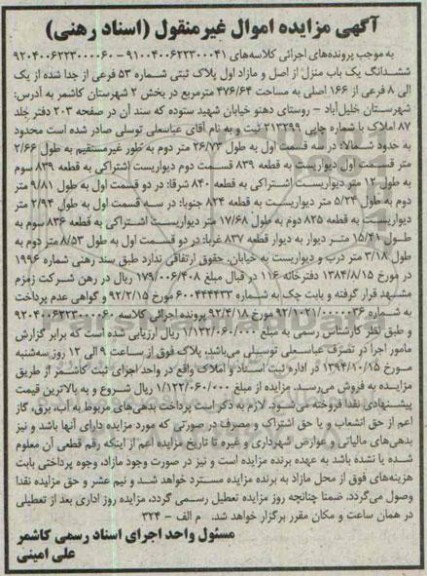 آگهی مزایده اموال غیرمنقول (اسناد رهنی)
به موجب پرونده‌های اجرائی کلاسه‌های ۹۱۰۰۴۰۰۶۲۲۳۰۰۰۰۴۱ – ۹۲۰۴۰۰۶۲۲۳۰۰۰۰۶۰
ششدانگ یک باب منزل از اصل و مازاد اول پلاک ثبتی شماره ۵۳ فرعی از جدا شده از یک
الی ۸ فرعی از ۱۶۶ اصلی به مساحت ۴۷۶/۶۴ مترمربع در بخش ۲ شهرستان کاشمر به آدرس:
شهرستان خلیل‌آباد – روستای دهنو خیابان شهید ستوده که سند آن در صفحه ۲۰۳ دفتر جلد
۸۷ املاک با شماره چاپی ۲۱۳۲۹۹ ثبت و به نام آقای عباسعلی توسلی صادر شده است محدود
به حدود شمالا: در سه قسمت اول به طول ۲۶/۷۳ متر دوم به طور غیرمستقیم به طول ۲/۶۶
متر قسمت اول دیواریست به قطعه ۸۳۹ قسمت دوم دیواریست اشتراکی به قطعه ۸۳۹ سوم
به طول ۱۲ متر دیواریست اشتراکی به قطعه ۸۴۰ شرقا: در دو قسمت اول به طول ۹/۸۱ متر
دوم به طول ۵/۲۴ متر دیواریست به قطعه ۸۲۴ جنوبا: در سه قسمت اول به طول ۲/۹۴ متر
دیواریست به قطعه ۸۲۵ دوم به طول ۱۷/۶۸ متر دیواریست اشتراکی به قطعه ۸۳۶ سوم به
طول ۱۵/۴۱ متر دیوار به دیوار قطعه ۸۳۷ غربا: در دو قسمت اول به طول ۸/۵۳ متر دوم به
طول ۳/۱۸ متر درب و دیواریست به خیابان. حقوق ارتفاقی ندارد طبق سند رهنی شماره ۱۹۹۶
در مورخ ۱۳۸۴/۸/۱۵ دفترخانه ۱۱۶ در قبال مبلغ ۱۷۹/۰۰۶/۴۰۸ ریال در رهن شرکت زمزم
مشهد قرار گرفته و بابت چک به شماره ۶۰۰۴۴۴۴۳۳ مورخ ۹۲/۲/۱۵ و گواهی عدم پرداخت
به شماره ۹۲/۱۰۲۱/۰۰۰۰۰۳۶ مورخ ۹۲/۴/۱۸ پرونده اجرائی کلاسه ۹۲۰۴۰۰۶۲۲۳۰۰۰۰۶۰
و طبق نظر کارشناس رسمی به مبلغ ۱/۱۳۲/۰۶۰/۰۰۰ ریال ارزیابی شده است که برابر گزارش
مامور اجرا در تصرف عباسعلی توسلی می‌باشد، پلاک فوق از ساعت ۹ الی ۱۲ روز سه‌شنبه
مورخ ۱۳۹۴/۱۰/۱۵ در اداره ثبت اسناد و املاک واقع در واحد اجرای ثبت کاشمر از طریق
مزایده به فروش می‌رسد. مزایده از مبلغ ۱/۱۲۲/۰۶۰/۰۰۰ ریال شروع و به بالاترین قیمت
پیشنهادی نقدا فروخته می‌شود. لازم به ذکر است پرداخت بدهی‌های مربوط به آب، برق، گاز
اعم از حق انشعاب و یا حق اشتراک و مصرف در صورتی که مورد مزایده دارای آنها باشد و نیز
بدهی‌های مالیاتی و عوارض شهرداری و غیره تا تاریخ مزایده اعم از اینکه رقم قطعی آن معلوم
شده یا نشده باشد به عهده برنده مزایده است و نیز در صورت وجود مازاد، وجوه پرداختی بابت
هزینه‌های فوق از محل مازاد به برنده مزایده مسترد خواهد شد و نیم عشر و حق مزایده نقدا
وصول می‌گردد. ضمنا چنانچه روز مزایده تعطیل رسمی گردد، مزایده روز اداری بعد از تعطیلی
در همان ساعت و مکان مقرر برگزار خواهد شد. م الف – ۳۲۴
مسئول واحد اجرای اسناد رسمی کاشمر
علی امینی